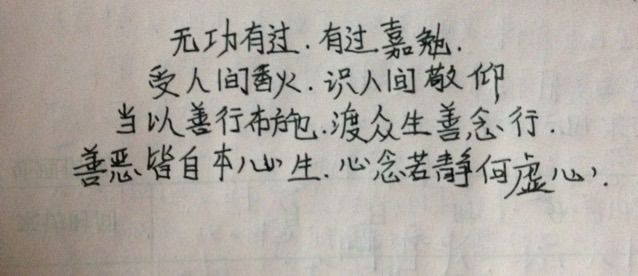 无功有过.有过嘉勉.
受人间香火.识人间敬仰
当以善行布施.渡众生善念行.
善恶皆自本心生.心念若静何虚心.